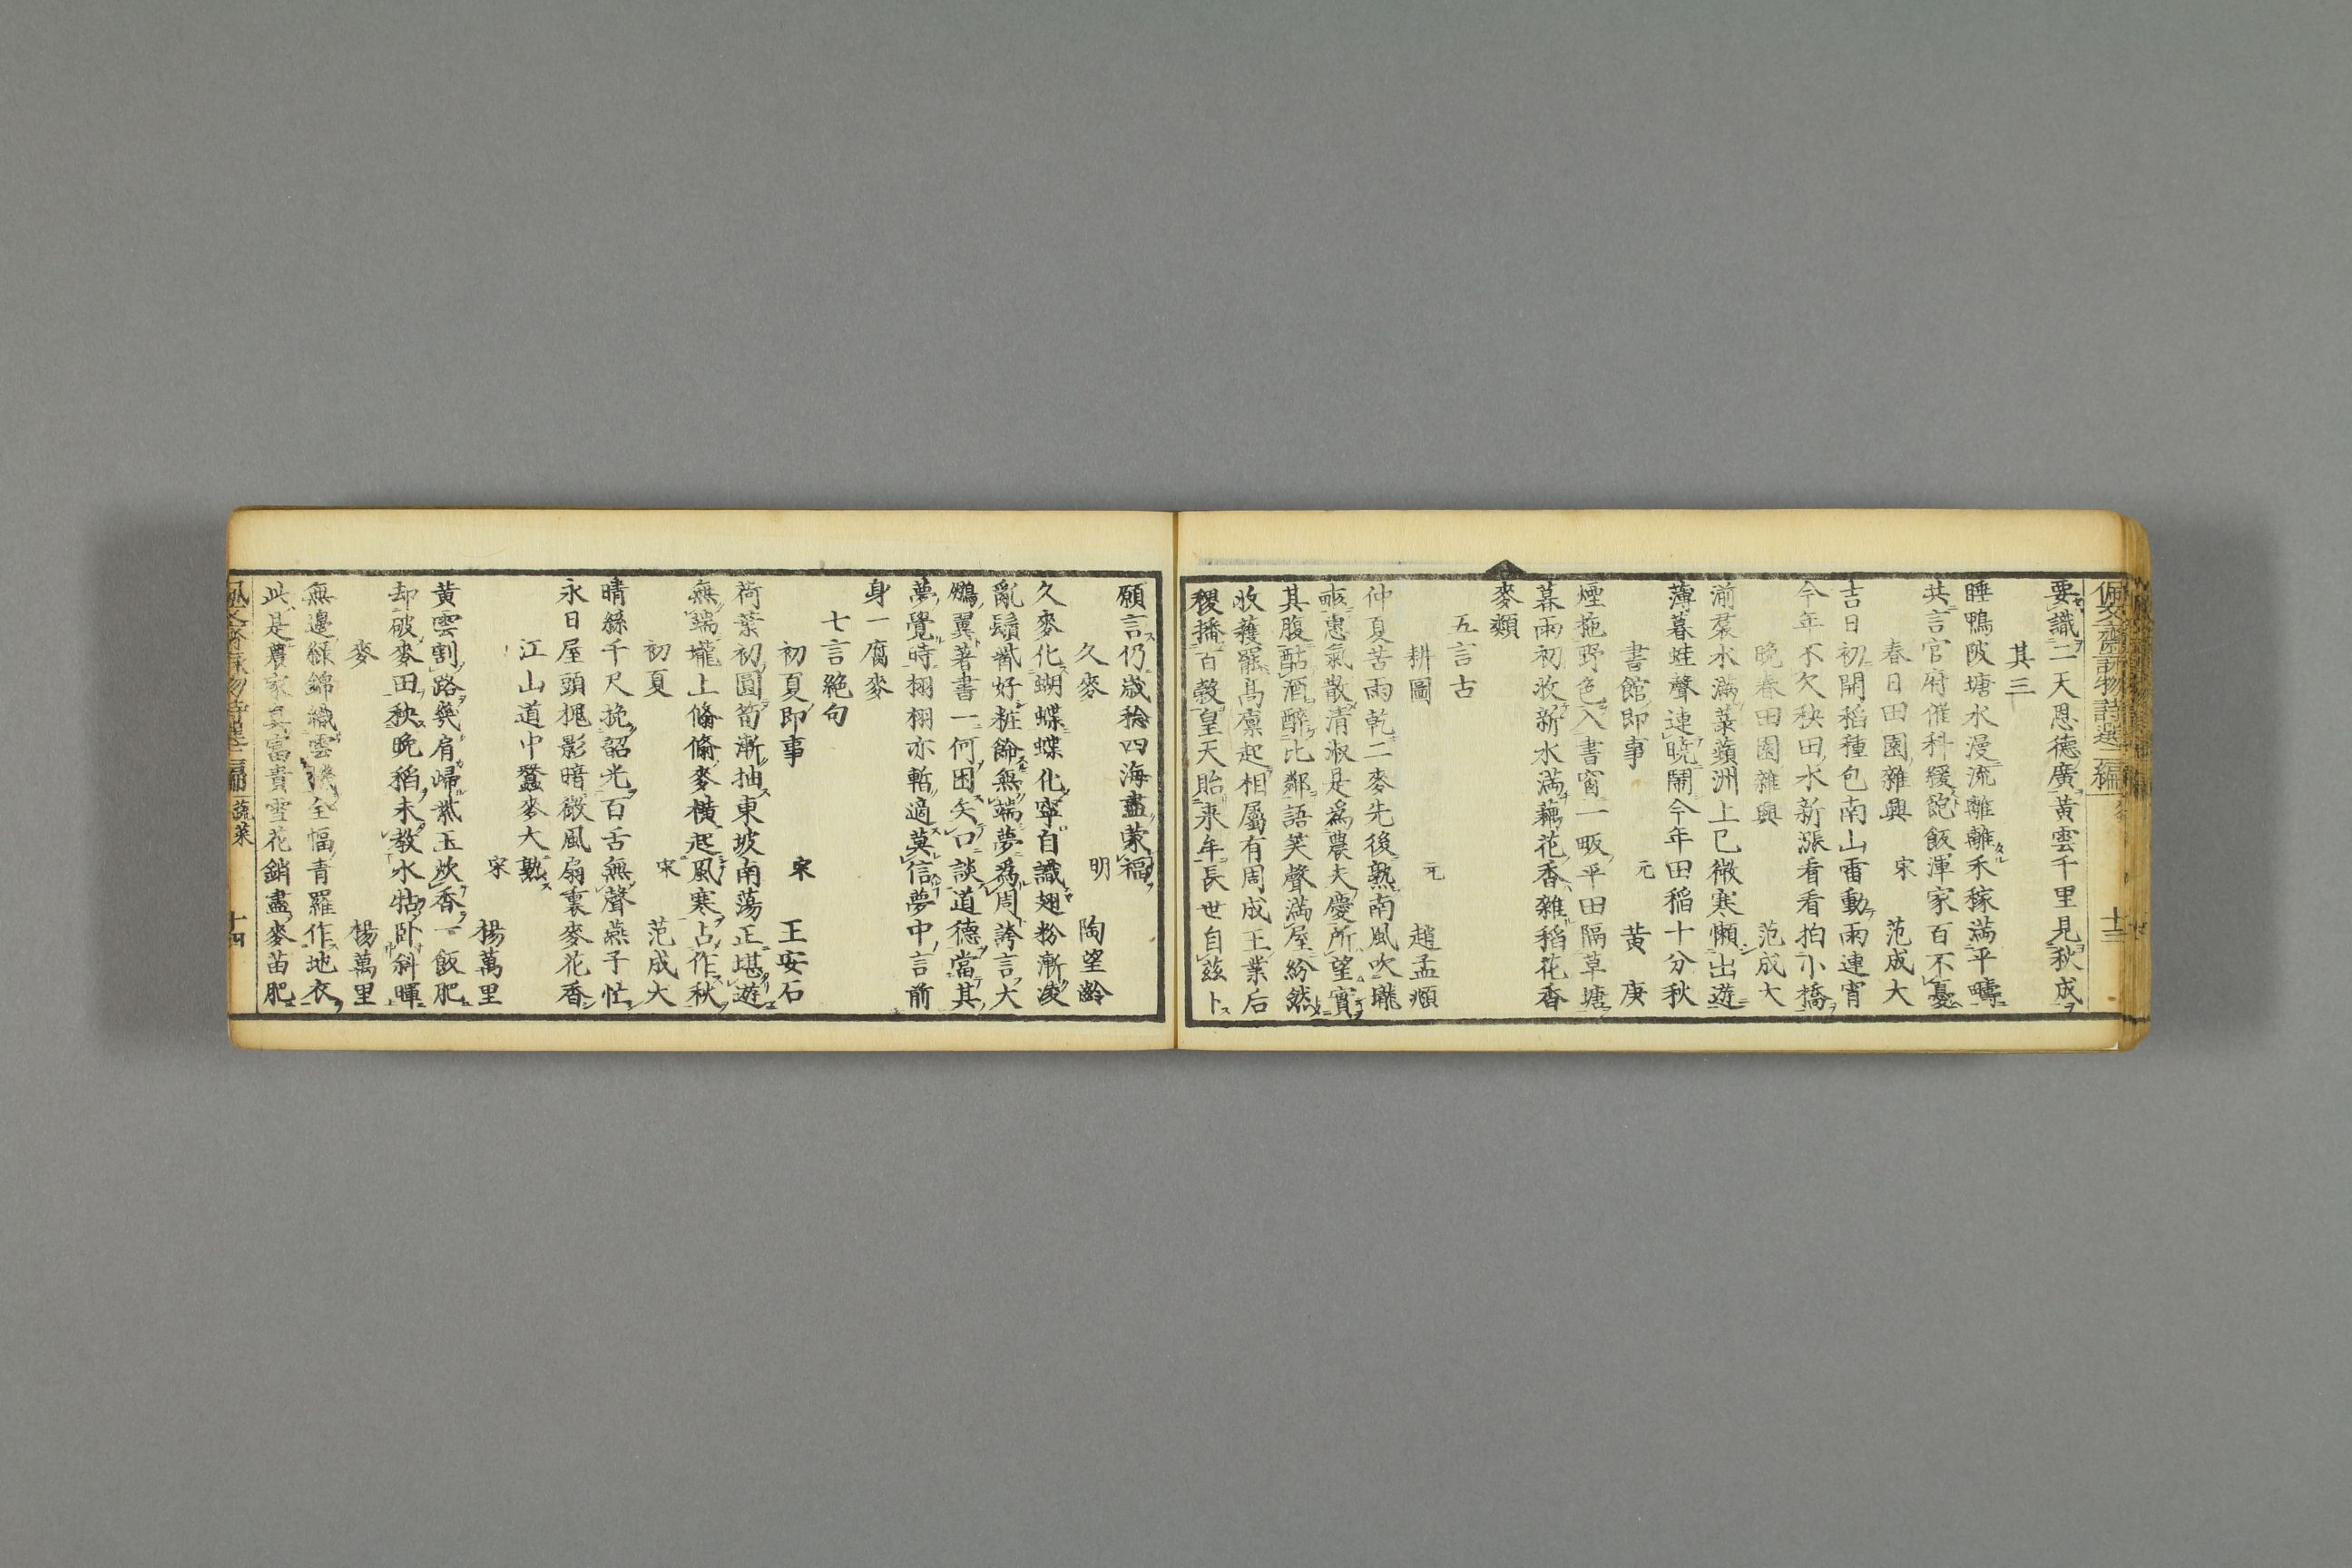 佩文齋詠物詩選二編
十三
要識二天恩德廣黃雲千里見秋成
其三
睡鴨陂塘水漫流離離禾稼滿平疇
共言官府催科緩飽飯渾家百不憂
春日田園雜興 宋 范成大
吉日初開稻種包南山雷動雨連宵
今年不欠秧田水新漲看看拍小橋
晚春田園雜興 范成大
湔裙水滿菉蘋洲上巳微寒懶出遊
薄暮蛙聲連曉鬧今年田稻十分秋
書館即事 元 黃庚
煙拖野色入書窗一畈平田隔草塘
暮雨初收新水滿藕花香雜稻花香
麥類
五言古
耕圖 元 趙孟頫
仲夏苦雨乾二麥先後熟南風吹壠
畝惠氣散清淑是爲農夫慶所望實
其腹酤酒醉比鄰語笑聲滿屋紛然
收穫罷高廩起相屬有周成王業后
稷播百穀皇天貽來年長世自茲卜
願言仍歲稔四海盡蒙福
久麥 明 陶望齡
久麥化蝴蝶蝶化寧自識翅粉漸凌
亂鬚嘴好粧飾無端夢爲周誇言大
鵬翼著書一何困矢口談道德當其
夢覺時栩栩亦暫適莫信夢中言前
身一腐麥
七言絶句
初夏即事 宋 王安石
荷葉初圓筍漸抽東坡南蕩正堪遊
無端壠上翛翛麥橫起風寒占作秋
初夏 宋 范成大
晴絲千尺挽韶光百舌無聲燕子忙
永日屋頭槐影暗微風扇裏麥花香
江山道中蠶麥大熟
宋 楊萬里
黃雲割路幾肩歸紫玉炊香一飯肥
却破麥田秧晚稻未教水牯臥斜暉
麥 楊萬里
無邊綠錦織雲機全幅青羅作地衣
此是農家真富貴雪花銷盡麥苗肥
佩文齋詠物詩選二編 蔬菜
十四